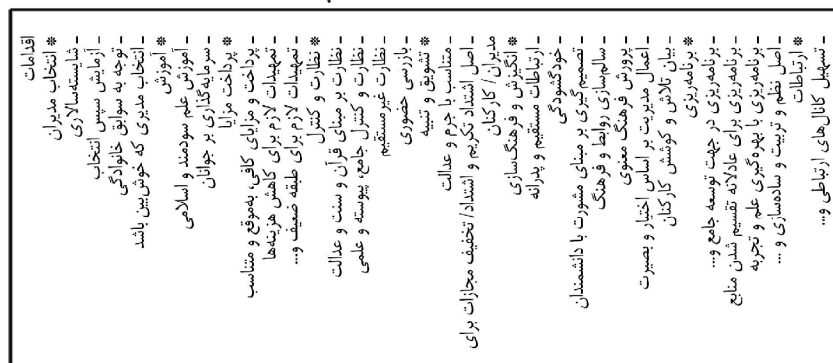 اقدامات
* انتخاب مدیران
- شایسته‌سالاری
- آزمایش سپس انتخاب
- توجه به سوابق خانوادگی
- انتخاب مدیری که خوش‌بین باشد
* آموزش
- آموزش علم سودمند و اسلامی
- سرمایه‌گذاری بر جوانان
* پرداخت مزایا
- پرداخت و مزایای کافی، به‌موقع و متناسب
- تمهیدات لازم برای کاهش هزینه‌ها
- تمهیدات لازم برای طبقه ضعیف و...
* نظارت و کنترل
- نظارت بر مبنای قرآن و سنت و عدالت
- نظارت و کنترل جامع، پیوسته و علمی
- نظارت غیرمستقیم
- بازرسی حضوری
* تشویق و تنبیه
- متناسب با جرم و عدالت
- اصل اشتداد تکریم و اشتداد/ تخفیف مجازات برای
مدیران/ کارکنان
* انگیزش و فرهنگ‌سازی
- ارتباطات مستقیم و پدرانه
- خودگشودگی
- تصمیم‌گیری بر مبنای مشورت با دانشمندان
- سالم‌سازی روابط و فرهنگ
- پرورش فرهنگ معنوی
- اعمال مدیریت بر اساس اختیار و بصیرت
- بیان تلاش و کوشش کارکنان
* برنامه‌ریزی
- برنامه‌ریزی در جهت توسعه جامع و...
- برنامه‌ریزی برای عادلانه تقسیم شدن منابع
- برنامه‌ریزی با بهره‌گیری علم و تجربه
- اصل نظم و تربیت و ساده‌سازی و ...
* ارتباطات
- تسهیل کانال‌های ارتباطی و...